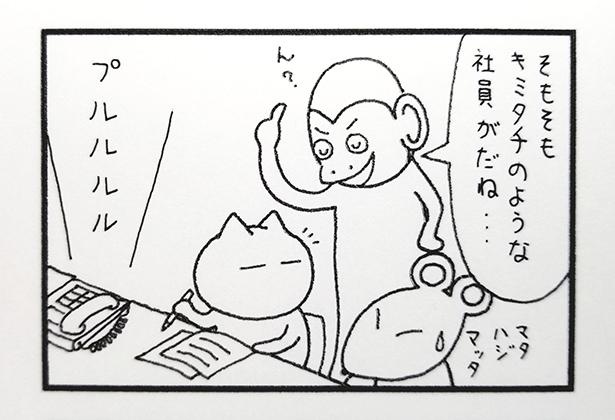 そもそも
キミタチのような
社員がだね…
ん?
プルルルル
マタ
ハジ
マッタ